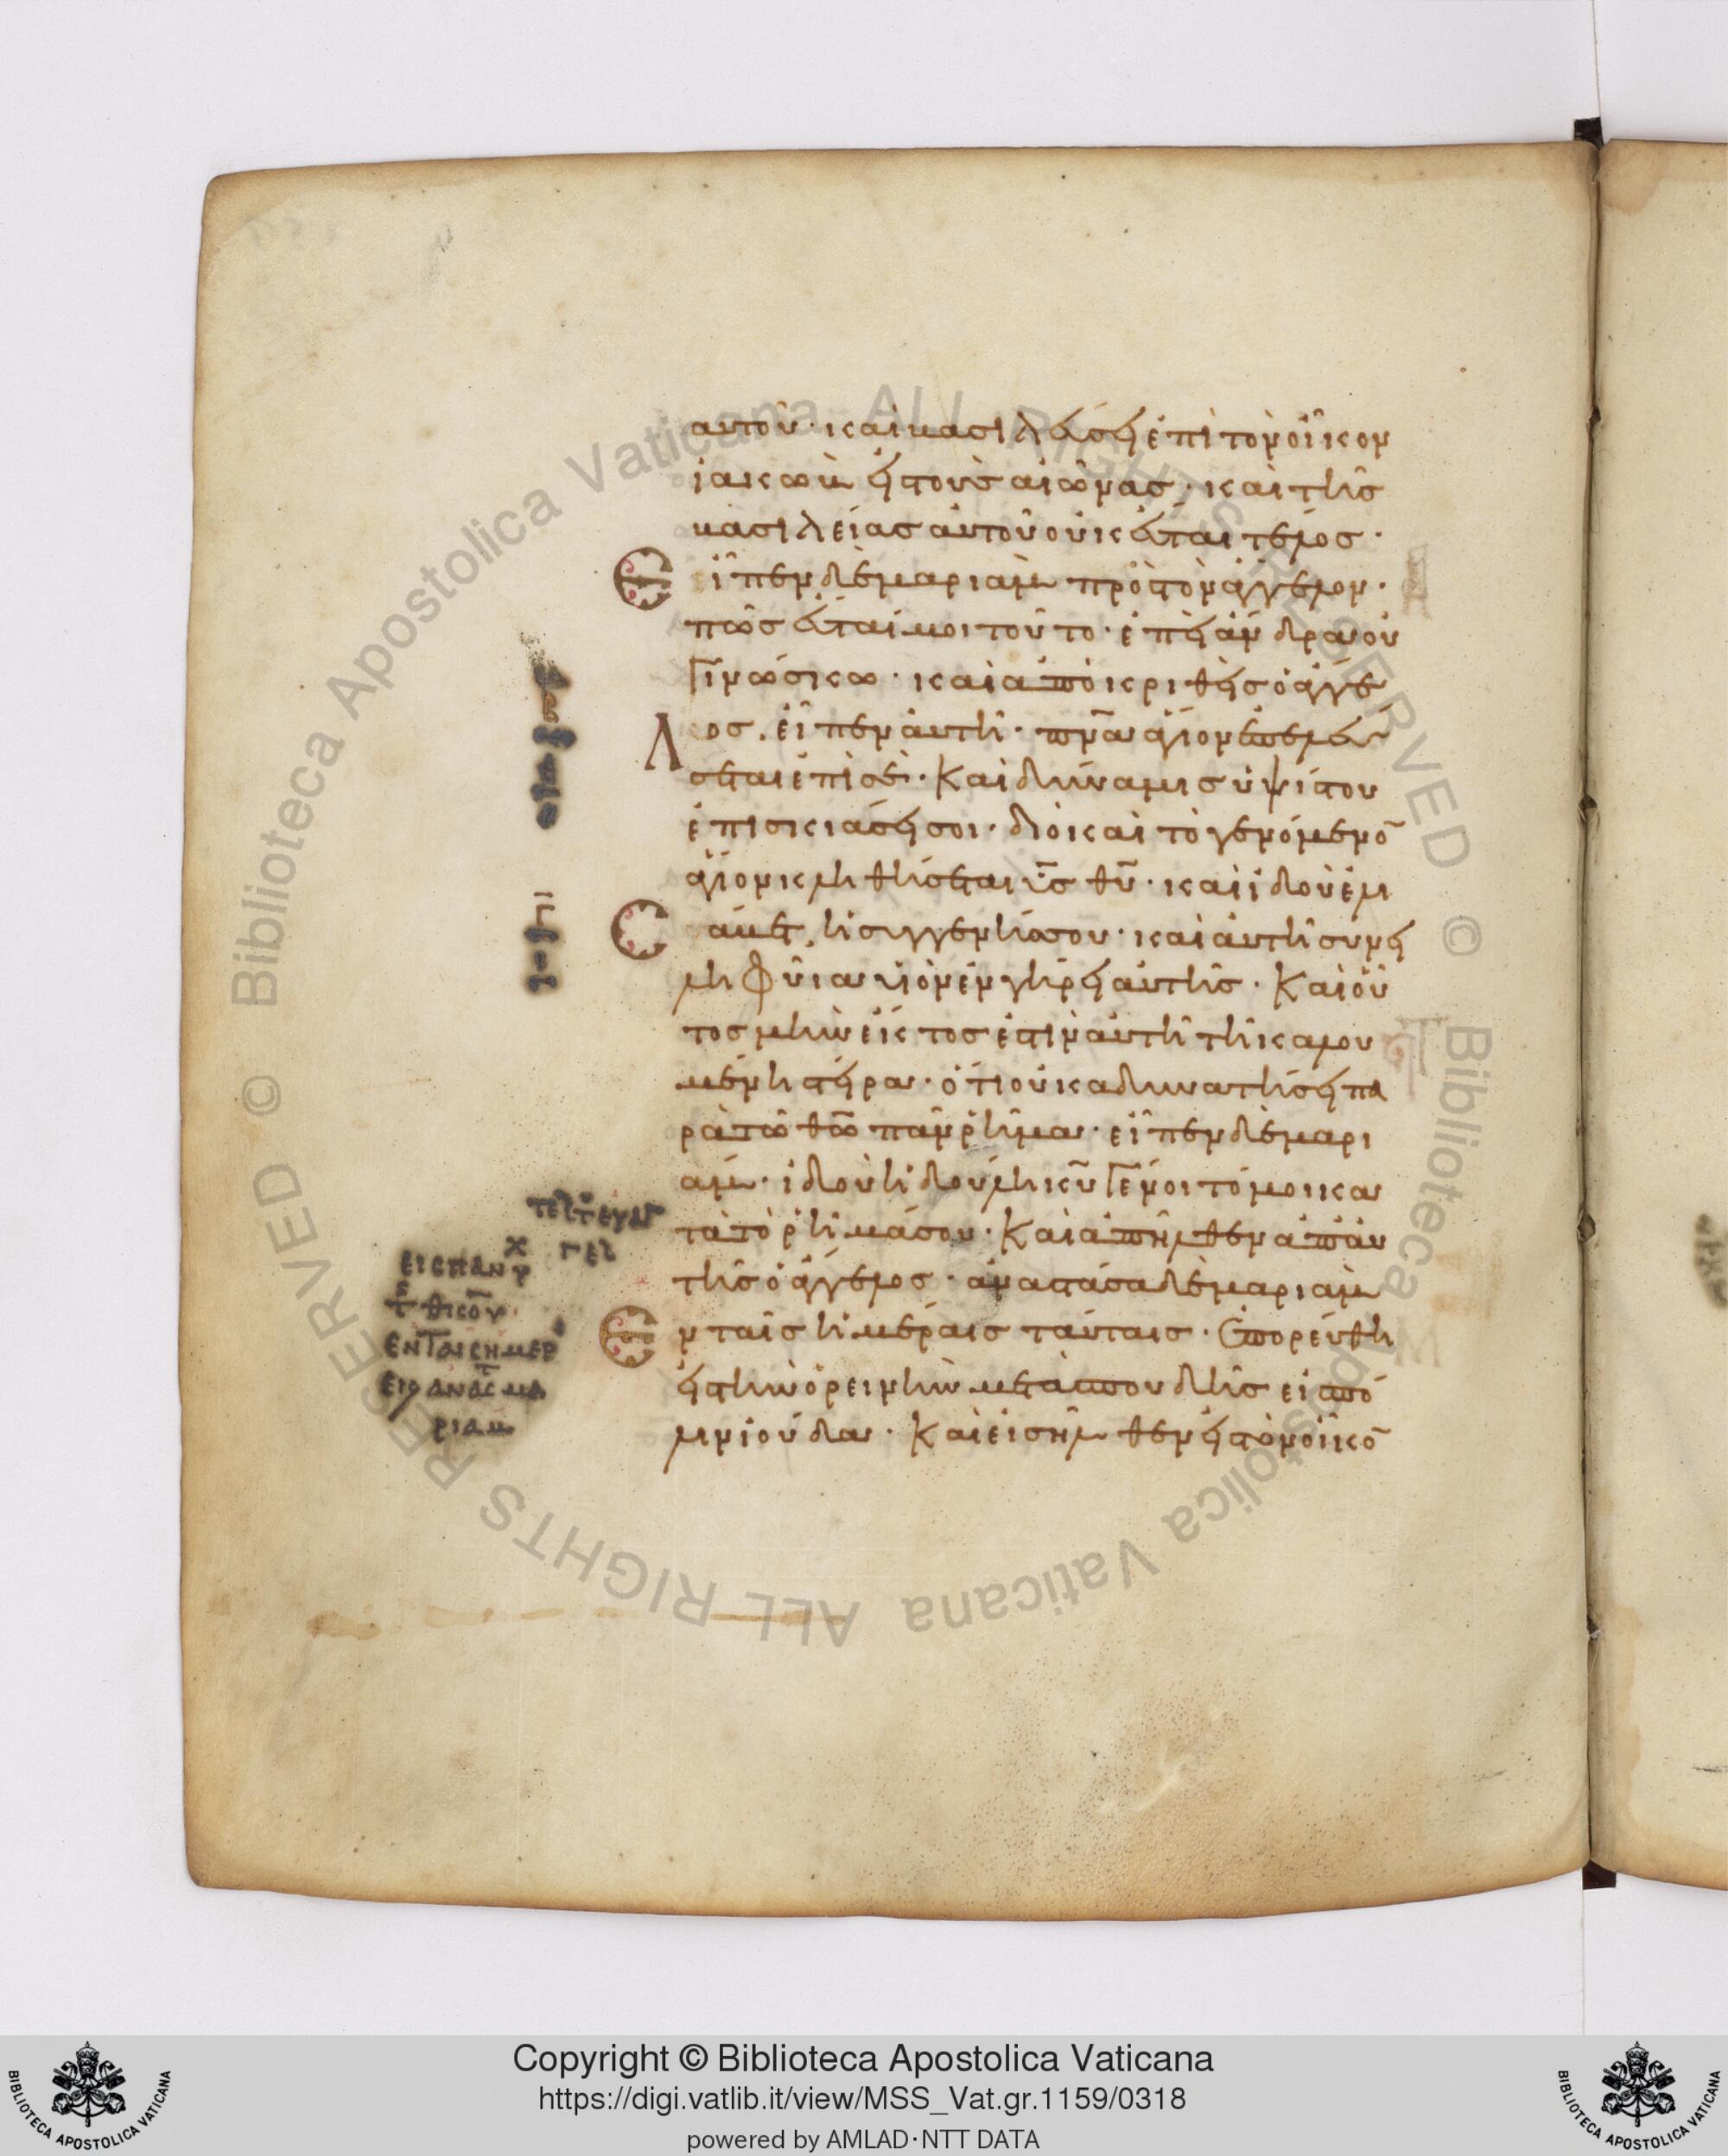 αυτοῦ· καὶ βασιλεύσει ἐπὶ τὸν οἶκον
ἰακὼβ εἰς τοὺς αἰῶνας· καὶ τῆς
βασιλείας αὐτοῦ οὐκ ἔσται τέλος·
Εἶπεν δὲ μαριὰμ πρὸς τὸν ἄγγελον·
πῶς ἔσται μοι τοῦτο· ἐπεὶ ἄνδρα οὐ
γινώσκω· καὶ ἀποκριθεὶς ὁ ἄγγε
λος. εἶπεν αὐτῆ· πνα ἅγιον ἐπελεύ
σεται ἐπὶ σέ· Καὶ δύναμις ὑψίστου
ἐπισκιάσει σοι· διὸ καὶ τὸ γενόμενο̄
ἅγιον κληθήσεται υς θυ· καὶ ἰδοὺ ἐλι
σάβετ ἡ συγγενής σου· καὶ αὐτὴ συνει
ληφυῖα υἱὸν ἐν γήρει αὐτῆς· Καὶ οὗ
τος μὴν ἕκτος ἐστὶν αὐτῆ τῆ καλου
μένη στείρα· ὅτι οὐκ ἀδυνατήσει πα
ρὰ τῶ θω πᾶν ῥῆμα· εἶπεν δὲ μαρι
άμ· ἰδοὺ ἡ δούλη κυ γένοιτό μοι κα
τὰ τὸ ῥῆμά σου· Καὶ ἀπῆλθεν ἀπ' αὐ
τῆς ὁ ἄγγελος· ἀναστᾶσα δὲ μαριὰμ
Ἐν ταῖς ἡμέραις ταύταις· ἐπορεύθη
εἰς τὴν ὀρεινὴν μετὰ σπουδῆς εἰς πό
λιν ἰούδα· Καὶ εἰσῆλθεν εἰς τὸν οἶκο̄
ΕΝ ΤΑΙΣ ΗΜΕΡ
ΑΝΑΣΤ ΜΑ
ΡΙΑΜ
Copyright © Biblioteca Apostolica Vaticana
https://digi.vatlib.it/view/MSS_Vat.gr.1159/0318
powered by AMLAD·NTT DATA
BIBLIOTECA APOSTOLICA VATICANA
BIBLIOTECA APOSTOLICA VATICANA
© Biblioteca Apostolica Vaticana ALL RIGHTS RESERVED
© Biblioteca Apostolica Vaticana ALL RIGHTS RESERVED